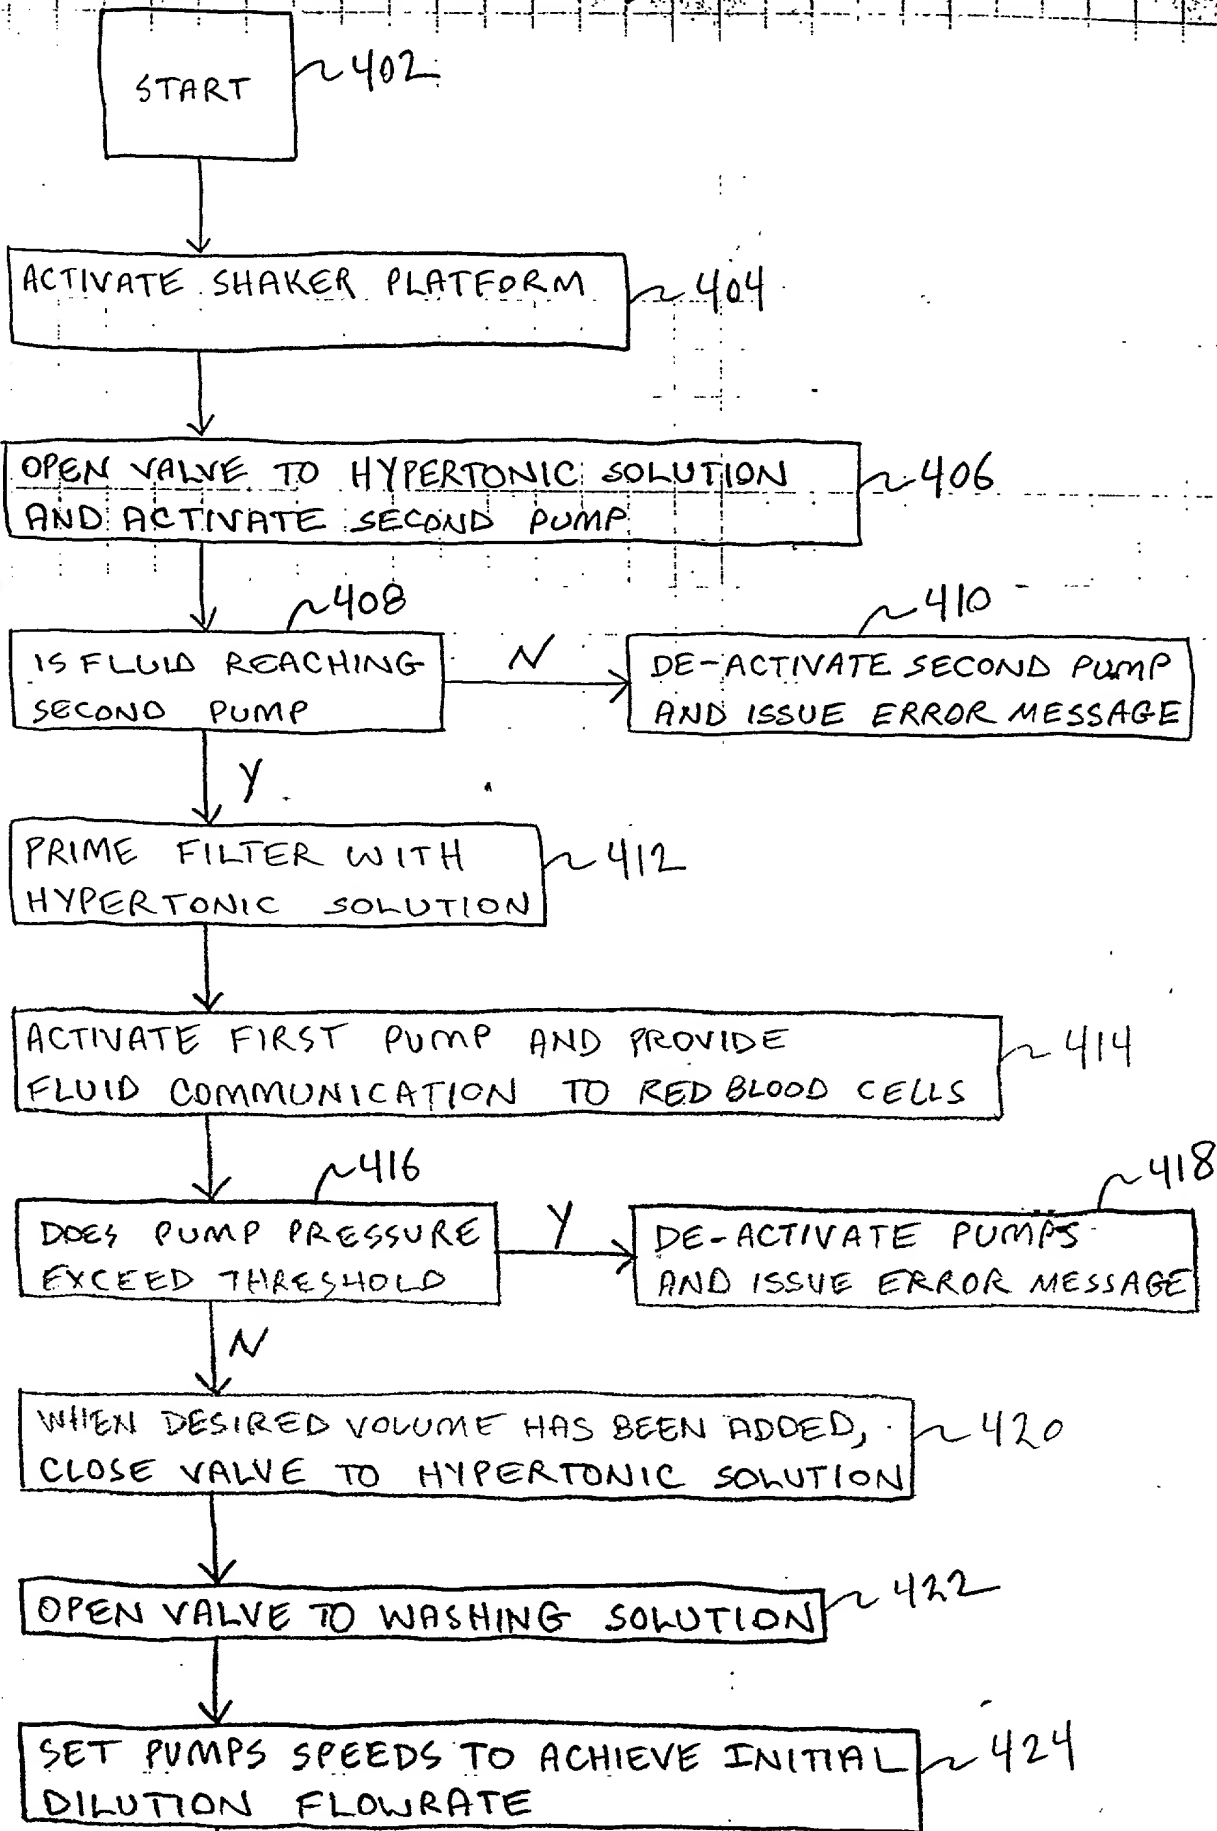 START
402
ACTIVATE SHAKER PLATFORM
404
OPEN VALVE TO HYPERTONIC SOLUTION
AND ACTIVATE SECOND PUMP
406
408
IS FLUID REACHING
SECOND PUMP
N
410
DE-ACTIVATE SECOND PUMP
AND ISSUE ERROR MESSAGE
Y
PRIME FILTER WITH
HYPERTONIC SOLUTION
412
ACTIVATE FIRST PUMP AND PROVIDE
FLUID COMMUNICATION TO RED BLOOD CELLS
414
416
DOES PUMP PRESSURE
EXCEED THRESHOLD
Y
418
DE-ACTIVATE PUMPS
AND ISSUE ERROR MESSAGE
N
WHEN DESIRED VOLUME HAS BEEN ADDED,
CLOSE VALVE TO HYPERTONIC SOLUTION
420
OPEN VALVE TO WASHING SOLUTION
422
SET PUMPS SPEEDS TO ACHIEVE INITIAL
DILUTION FLOWRATE
424